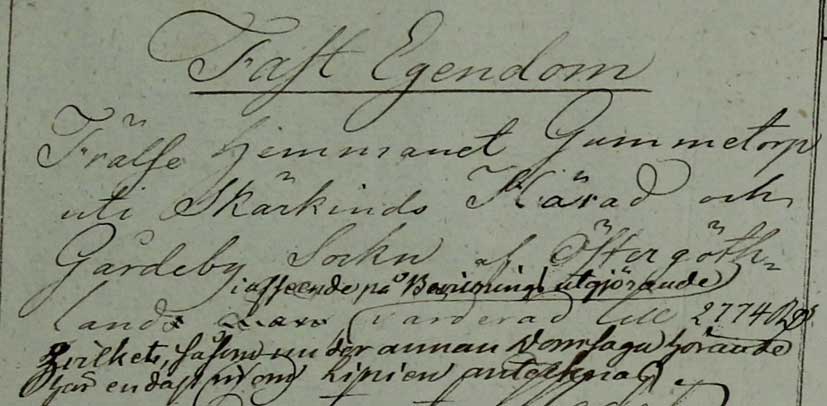 Fast Egendom
Frälse hemmanet Gummetorp
uti Skärkinds Härad och
Gårdeby Sockn af Östergöth-
i afseende på Bevirnings utgjörande
lands värderad till 2774 Rd
hvilket, såsom under annan Domsaga hörande
här endast antecknas.